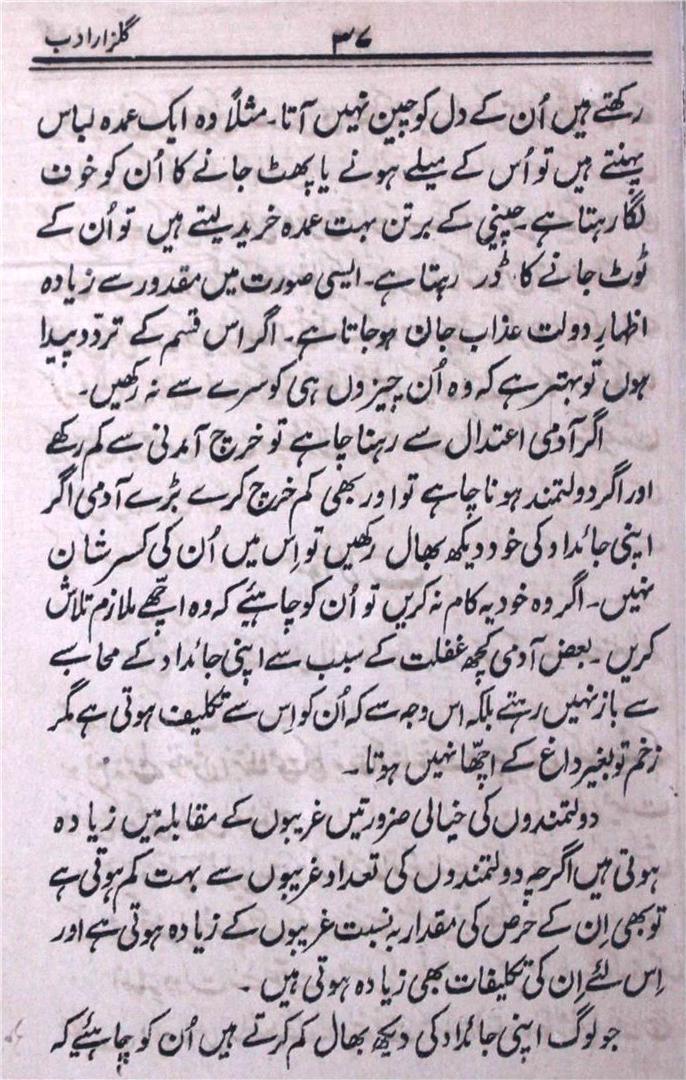 گلزار ادب
۳۷
رکھتے ہیں اُن کے دل کو چین نہیں آتا۔ مثلاً وہ ایک عمدہ لباس
پہنتے ہیں تو اُس کے میلے ہونے یا پھٹ جانے کا اُن کو خوف
لگا رہتا ہے۔ چینی کے برتن بہت عمدہ خرید لیتے ہیں تو اُن کے
ٹوٹ جانے کا ڈر رہتا ہے۔ ایسی صورت میں مقدور سے زیادہ
اظہارِ دولت عذاب جان ہوجاتا ہے۔ اگر اس قسم کے تردّد پیدا
ہوں تو بہتر ہے کہ وہ اُن چیزوں ہی کو سرے سے نہ رکھیں۔
اگر آدمی اعتدال سے رہنا چاہے تو خرچ آمدنی سے کم رکھے
اور اگر دولتمند ہونا چاہے تو اور بھی کم خرچ کرے بڑے آدمی اگر
اپنی جائداد کی خود دیکھ بھال رکھیں تو اِس میں اُن کی کسر شان
نہیں۔ اگر وہ خود یہ کام نہ کریں تو اُن کو چاہئیے کہ وہ اچھّے ملازم تلاش
کریں۔ بعض آدمی کچھ غفلت کے سبب سے اپنی جائداد کے محاسبے
سے باز نہیں رہتے بلکہ اس وجہ سے کہ اُن کو اِس سے تکلیف ہوتی ہے مگر
زخم تو بغیر داغ کے اچھّا نہیں ہوتا۔
دولتمندوں کی خیالی ضرورتیں غریبوں کے مقابلہ میں زیادہ
ہوتی ہیں اگرچہ دولتمندوں کی تعداد غریبوں سے بہت کم ہوتی ہے
تو بھی اِن کے حرص کی مقدار بہ نسبت غریبوں کے زیادہ ہوتی ہے اور
اِس لئے اِن کی تکلیفات بھی زیادہ ہوتی ہیں۔
جو لوگ اپنی جائداد کی دیکھ بھال کم کرتے ہیں اُن کو چاہئیے کہ